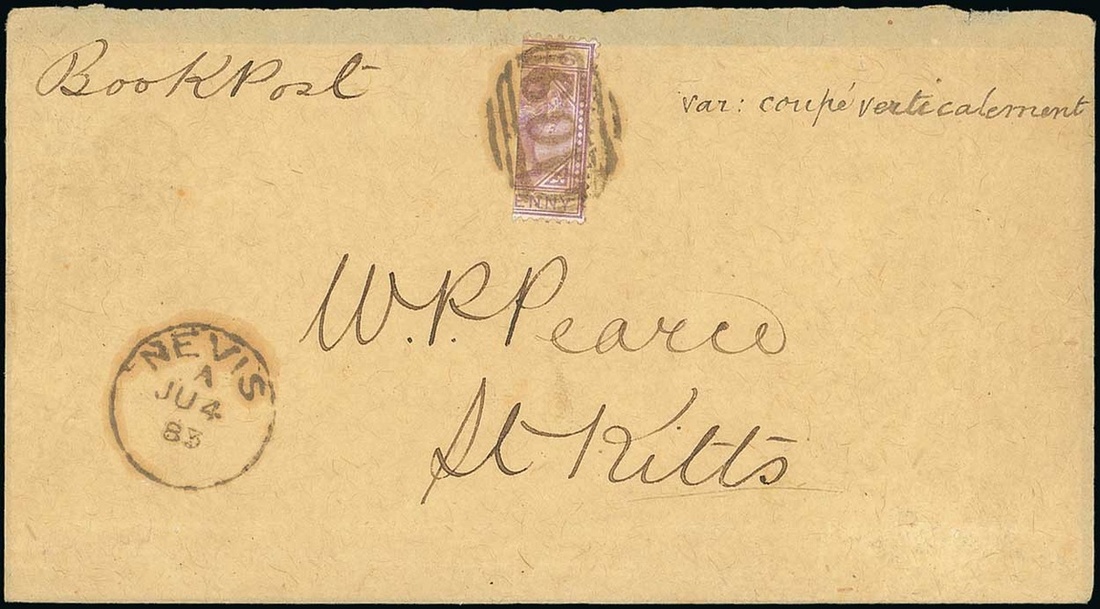 Book Post
var: coupé verticalement
A09
ENNY
W.P. Pearce
St Kitts
NEVIS
A
JU 4
83